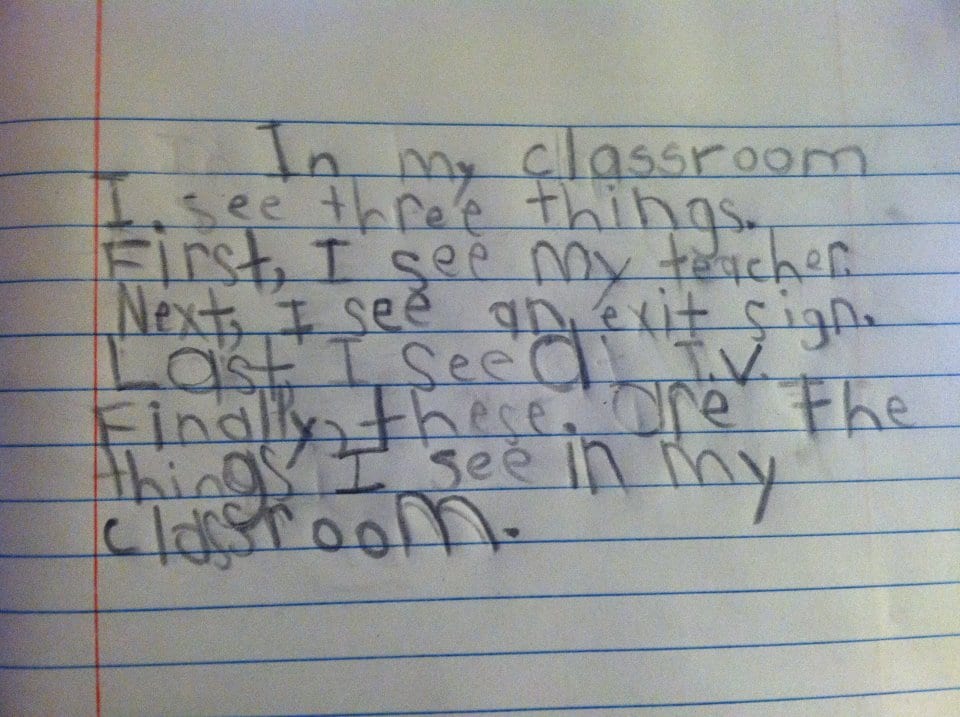 In my classroom
I see three things.
First, I see my teacher.
Next, I see an exit sign.
Last, I see a T.V.
Finally, these are the
things I see in my
classroom.